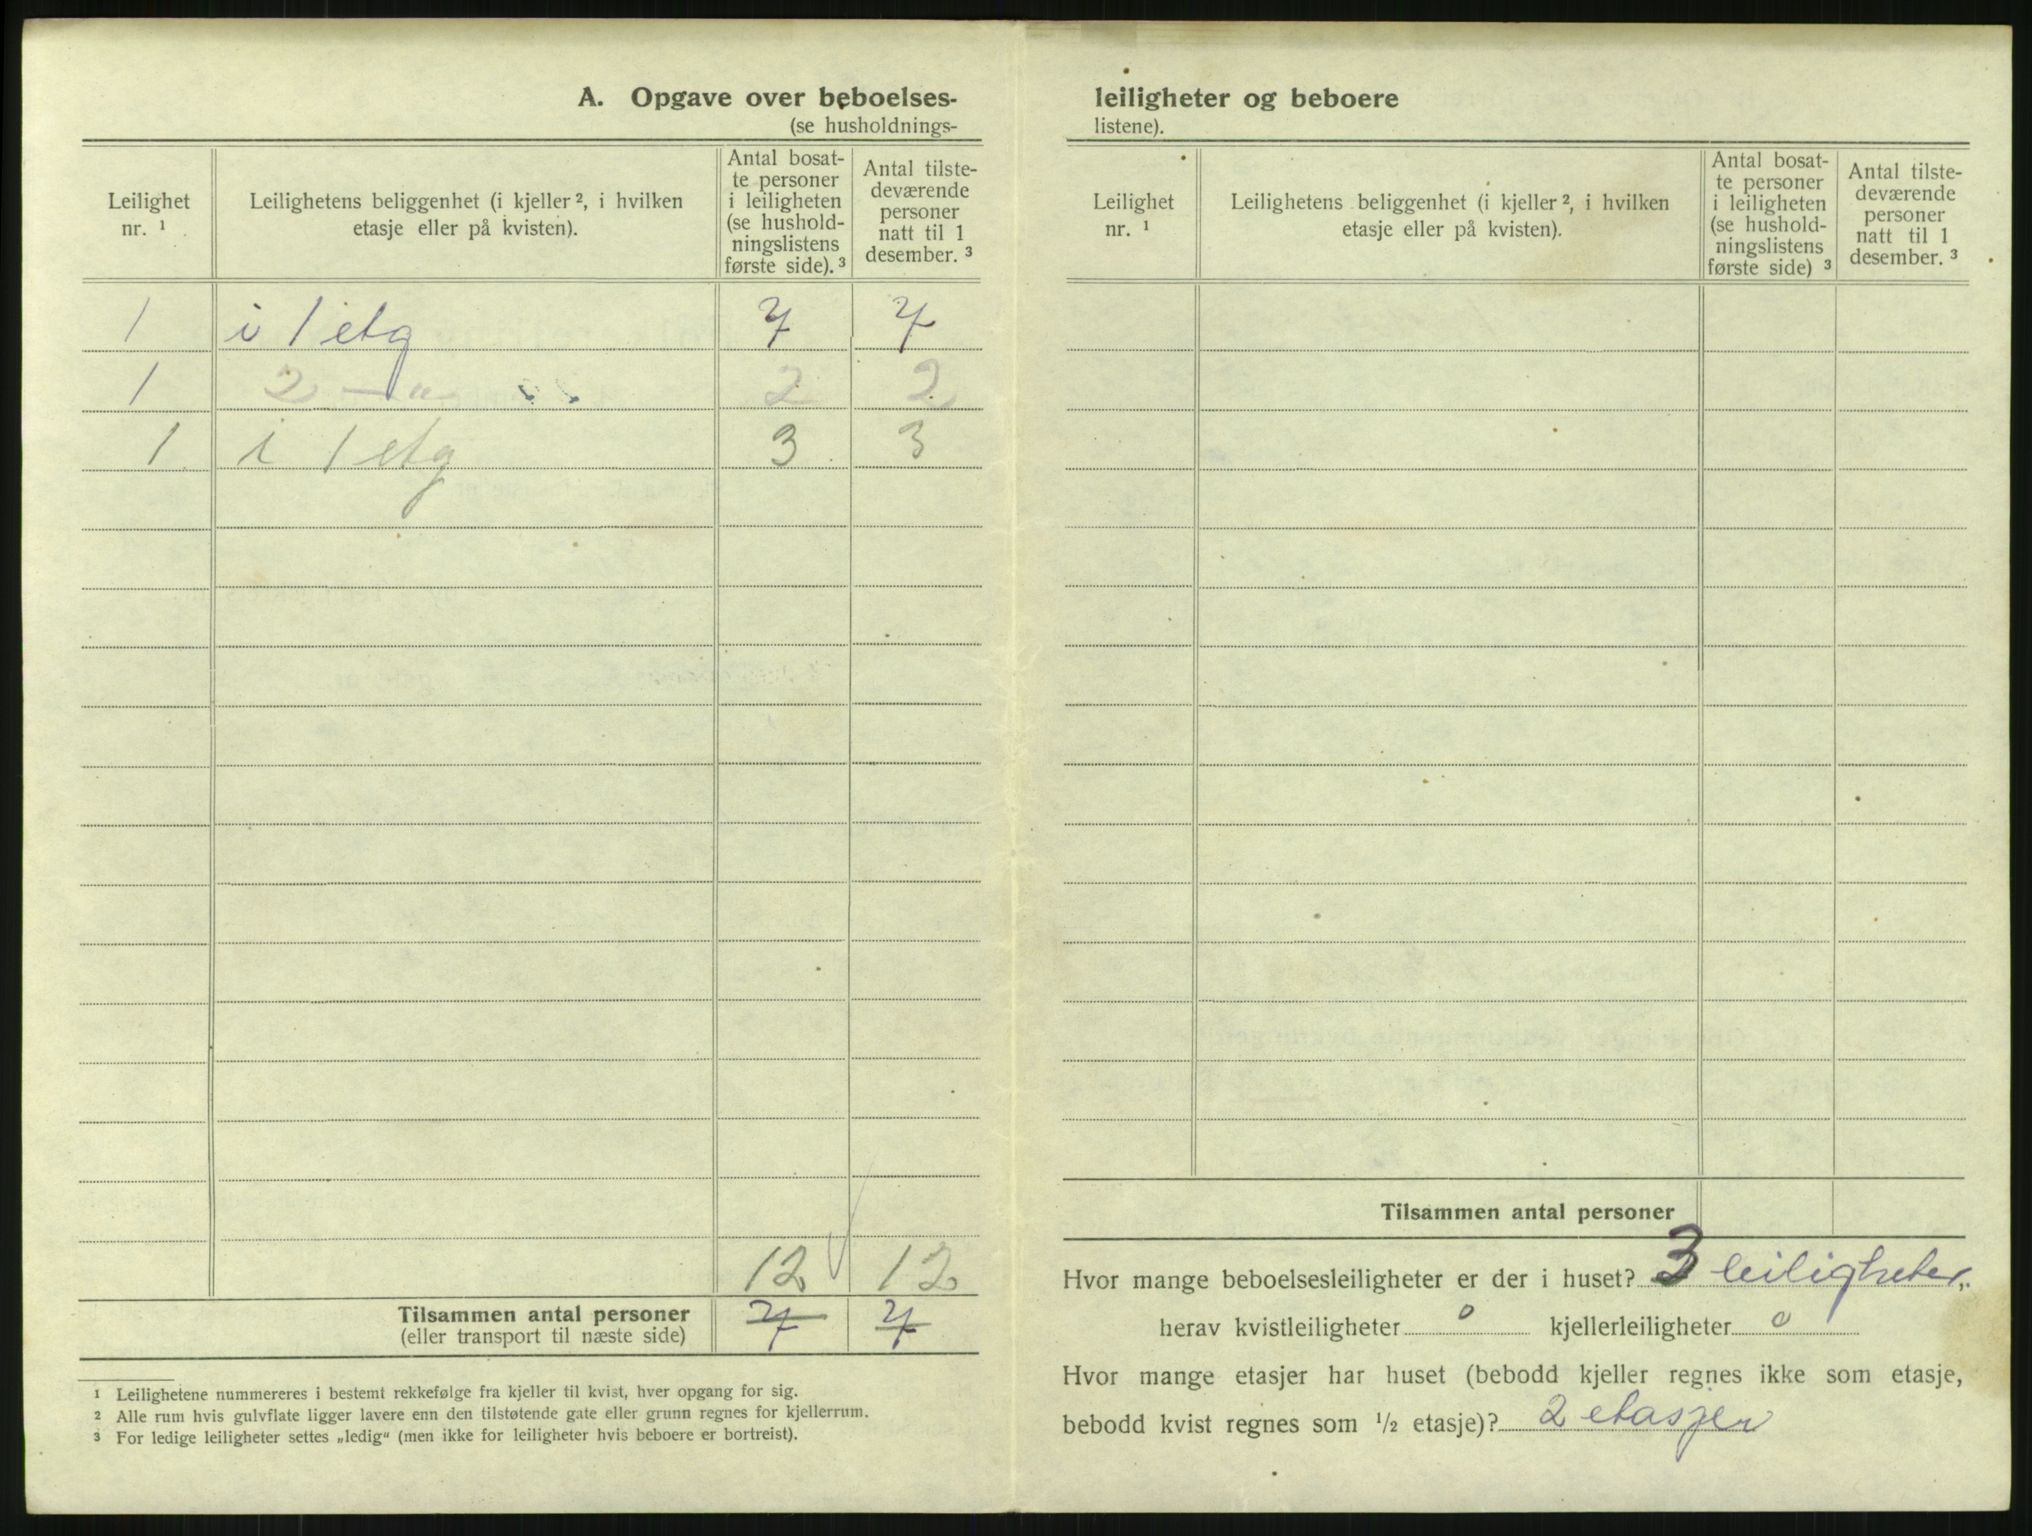 A. Opgave over beboelses-
(se husholdnings-
Leilighet nr. ¹
Leilighetens beliggenhet (i kjeller ², i hvilken etasje eller på kvisten).
Antal bosat-
te personer
i leiligheten
(se hushold-
ningslistens
første side). ³
Antal tilste-
deværende
personer
natt til 1
desember. ³
1 i 1 etg 7 7
1 2 — " — 2 2
1 i 1 etg 3 3
12 12
Tilsammen antal personer 7 7
(eller transport til næste side)
¹ Leilighetene nummereres i bestemt rekkefølge fra kjeller til kvist, hver opgang for sig.
² Alle rum hvis gulvflate ligger lavere enn den tilstøtende gate eller grunn regnes for kjellerrum.
³ For ledige leiligheter settes „ledig“ (men ikke for leiligheter hvis beboere er bortreist).
leiligheter og beboere
listene).
Leilighet nr. ¹
Leilighetens beliggenhet (i kjeller ², i hvilken etasje eller på kvisten).
Antal bosat-
te personer
i leiligheten
(se hushold-
ningslistens
første side) ³
Antal tilste-
deværende
personer
natt til 1
desember. ³
Tilsammen antal personer
Hvor mange beboelsesleiligheter er der i huset? 3 leiligheter,
herav kvistleiligheter 0 kjellerleiligheter 0
Hvor mange etasjer har huset (bebodd kjeller regnes ikke som etasje,
bebodd kvist regnes som ½ etasje)? 2 etasjer